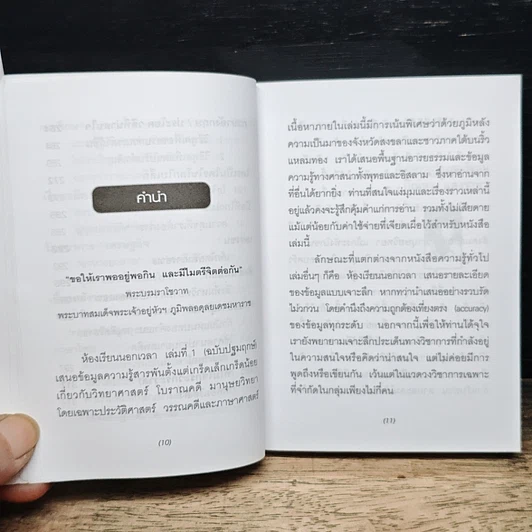 คำนำ
"ขอให้เราพออยู่พอกิน และมีไมตรีจิตต่อกัน"
พระบรมราโชวาท
พระบาทสมเด็จพระเจ้าอยู่หัวฯ ภูมิพลอดุลยเดชมหาราช
ห้องเรียนนอกเวลา เล่มที่ 1 (ฉบับปฐมฤกษ์)
เสนอข้อมูลความรู้สารพันตั้งแต่เกร็ดเล็กเกร็ดน้อย
เกี่ยวกับวิทยาศาสตร์ โบราณคดี มานุษยวิทยา
โดยเฉพาะประวัติศาสตร์ วรรณคดีและภาษาศาสตร์
(10)
เนื้อหาภายในเล่มนี้มีการเน้นพิเศษว่าด้วยภูมิหลัง
ความเป็นมาของจังหวัดสงขลาและชาวภาคใต้บนริ้ว
แหลมทอง เราได้เสนอพื้นฐานอารยธรรมและข้อมูล
ความรู้ทางศาสนาทั้งพุทธและอิสลาม ซึ่งหาอ่านจาก
ที่อื่นได้ยากยิ่ง ท่านที่สนใจแง่มุมและเรื่องราวเหล่านี้
อยู่แล้วคงจะรู้สึกคุ้มค่าแก่การอ่าน รวมทั้งไม่เสียดาย
แม้แต่น้อยกับค่าใช้จ่ายที่เจียดเผื่อไว้สำหรับหนังสือ
เล่มนี้
ลักษณะที่แตกต่างจากหนังสือความรู้ทั่วไป
เล่มอื่นๆ ก็คือ ห้องเรียนนอกเวลา เสนอรายละเอียด
ของข้อมูลแบบเจาะลึก หากทว่านำเสนออย่างรวบรัด
ไม่วกวน โดยคำนึงถึงความถูกต้องเที่ยงตรง (accuracy)
ของข้อมูลทุกระดับ นอกจากนี้เพื่อให้ท่านได้จุใจ
เรายังพยายามเจาะลึกประเด็นทางวิชาการที่กำลังอยู่
ในความสนใจหรือคิดว่าน่าสนใจ แต่ไม่ค่อยมีการ
พูดถึงหรือเขียนกัน เว้นแต่ในแวดวงวิชาการเฉพาะ
ที่จำกัดในกลุ่มเพียงไม่กี่คน
(11)